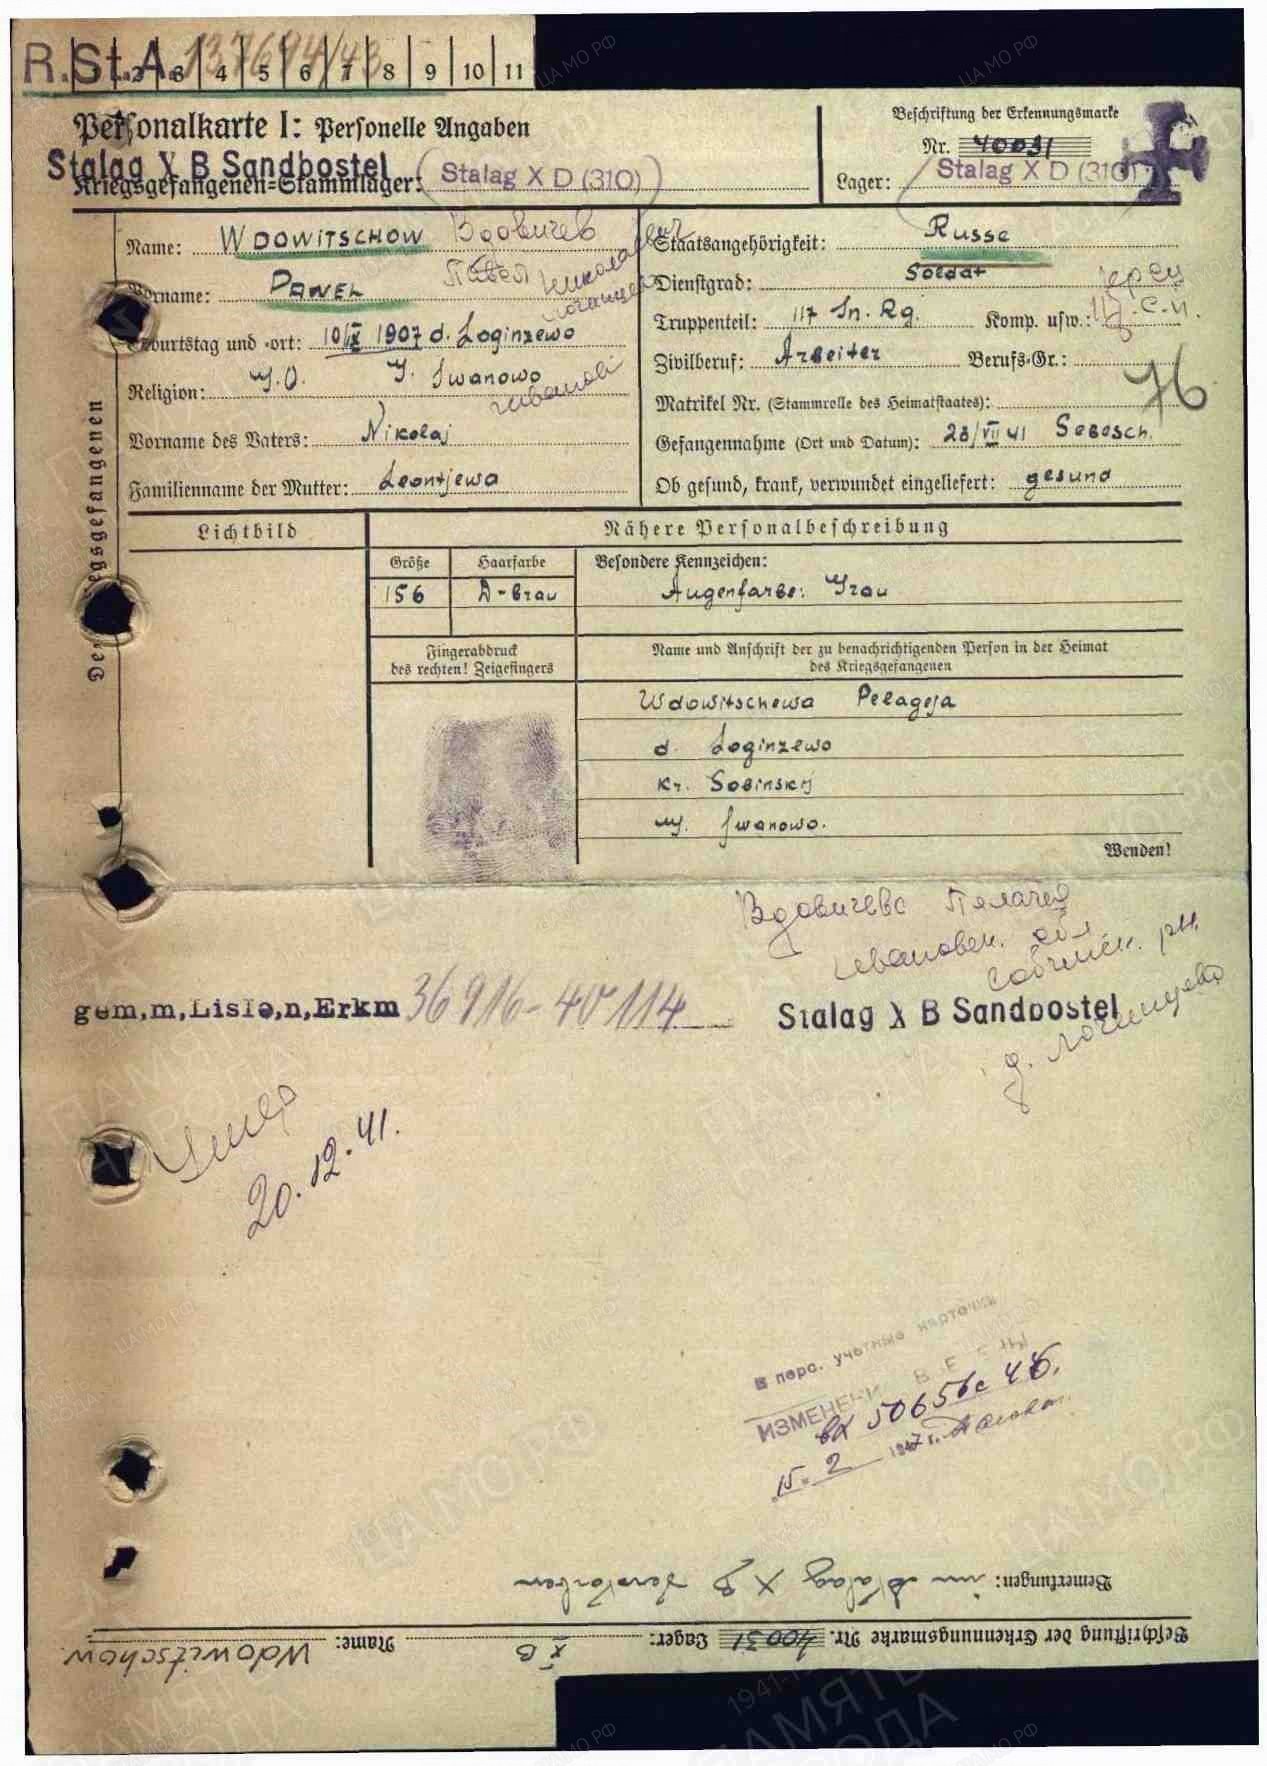 R.St.A. 137694/43
2 3 4 5 6 7 8 9 10 11
Personalkarte I: Personelle Angaben
Beschriftung der Erkennungsmarke
Nr. 40031
Stalag X B Sandbostel
Kriegsgefangenen-Stammlager: Stalag X D (310)
Lager: Stalag X D (310)
Name: WDOWITSCHOW Вдовичев
Vorname: PAWEL Павел Николаевич
Geburtstag und -ort: 10/IX 1907 d. Loginzewo
Religion: G. Iwanowo
Vorname des Vaters: Nikolaj
Familienname der Mutter: Leontjewa
Staatsangehörigkeit: Russe
Dienstgrad: Soldat
Truppenteil: 117 In. Rg. Komp. usw.:
Zivilberuf: Arbeiter Berufs-Gr.:
76
Matrikel Nr. (Stammrolle des Heimatstaates):
Gefangennahme (Ort und Datum): 28/VII 41 Sebesch.
Ob gesund, krank, verwundet eingeliefert: gesund
Lichtbild
Nähere Personalbeschreibung
Größe Haarfarbe Besondere Kennzeichen:
156 D-brau Augenfarbe: Grau
Fingerabdruck
des rechten! Zeigefingers
Name und Anschrift der zu benachrichtigenden Person in der Heimat
des Kriegsgefangenen
Wdowitschewa Pelageja
d. Loginzewo
Kr. Sobinskij
G. Iwanowo.
Wenden!
Вдовичева Пелагея
Ивановск. обл.
Собинск. рн.
д. Логинцево
gem,m,Liste,n,Erkm 36916-40114
Stalag X B Sandbostel
Умер
20.12.41.
В перс. учетные карточки
ИЗМЕНЕН ВНЕСЕНЫ
вх 50656с 46.
15. 2 1947 г.
Bemerkungen: im Stalag X B verstorben
Beschriftung der Erkennungsmarke Nr. 40031 Lager: X B Name: Wdowitschow.